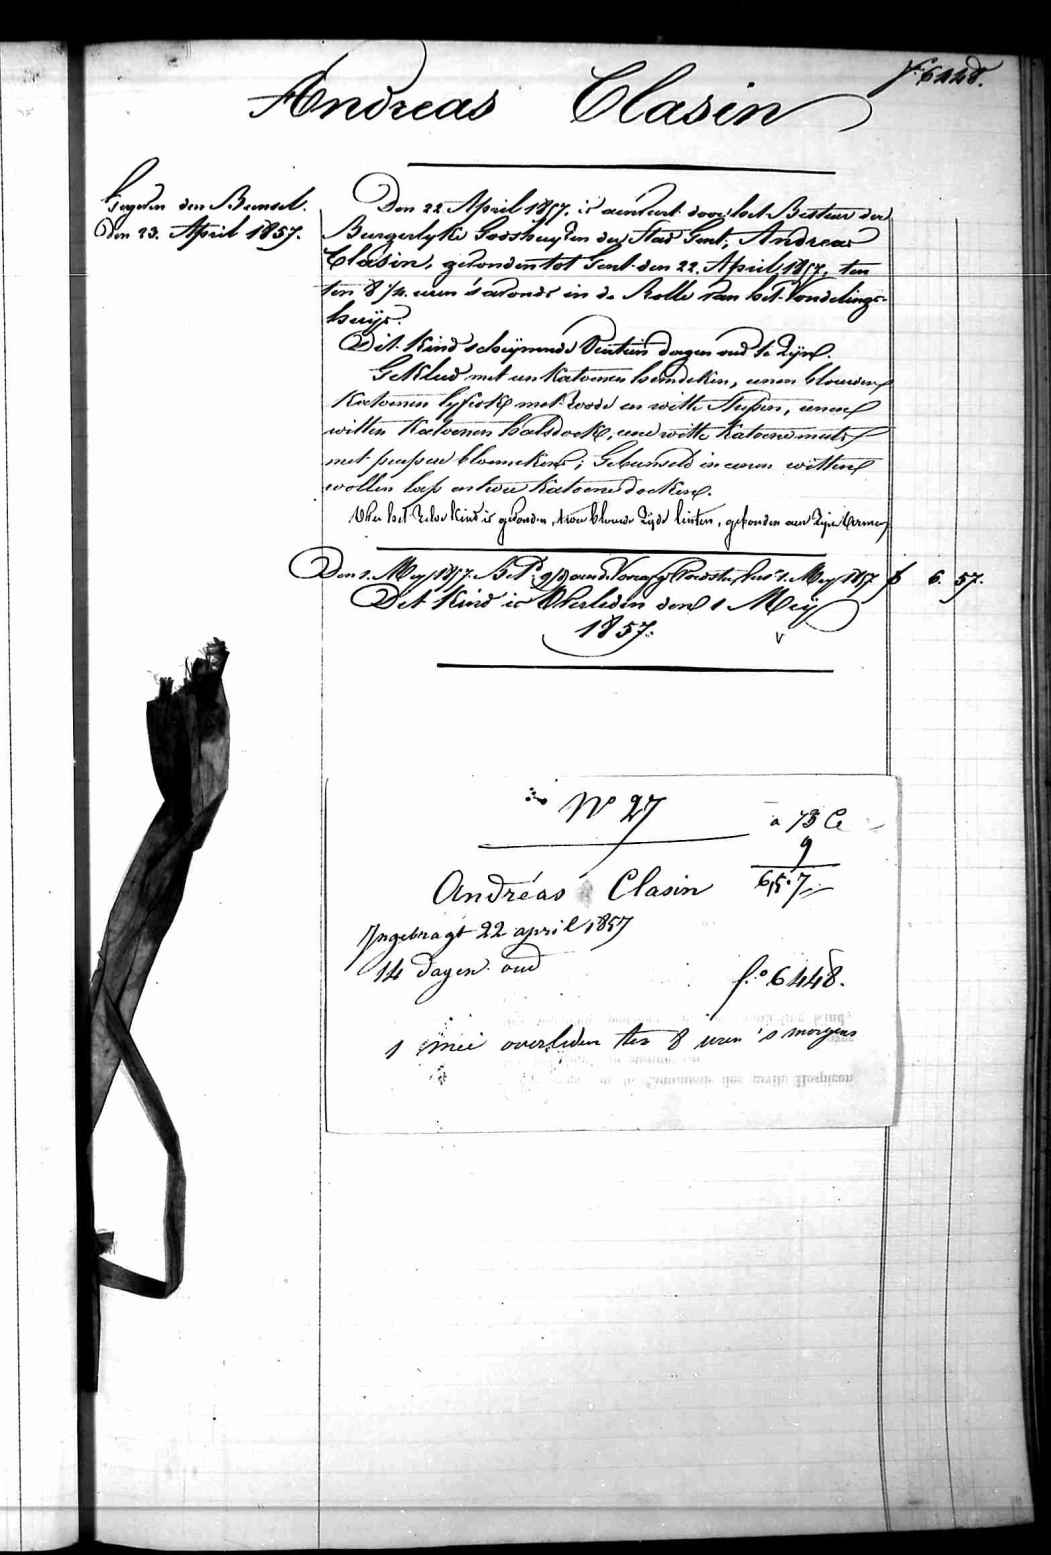 f.º 6448.
Andreas Clasin
Gegeven den Bewust.
Den 23. April 1857.
Den 22 April 1857. is aenveert door het Bestuer der
Burgerlyke Godshuyzen der Stad Gent, Andreas
Clasin, gevonden tot Gent den 22. April 1857, ten
ten 8 ½ uren 's avonds in de Rolle van het Vondelings-
huijs.
Dit Kind schijnende veertien dagen oud te zijn.
Gekleed met een Katoenen hemdeken, eenen blauwen
Katoenen lyfrok met roode en witte strepen, eenen
witten Katoenen halsdoek, eene witte Katoene muts
met peersche bloemekens; Gebunseld in eenen witten
wollen lap en twee Katoene doeken.
Op het zelve kind is gevonden, twee blauwe zijde linten, gebonden aen zijne Armen
Den 1. Mey 1857. Bet. 9 dagen 1. Mey 1857 f 6. 57.
Dit Kind is Overleden den 1 Meij
1857.
Nº 27
a 73 Ce
9
6,57
Andréas Clasin
Ingebragt 22 april 1857
14 dagen oud
f.º 6448.
1 mei overleden ten 8 uren 's morgens